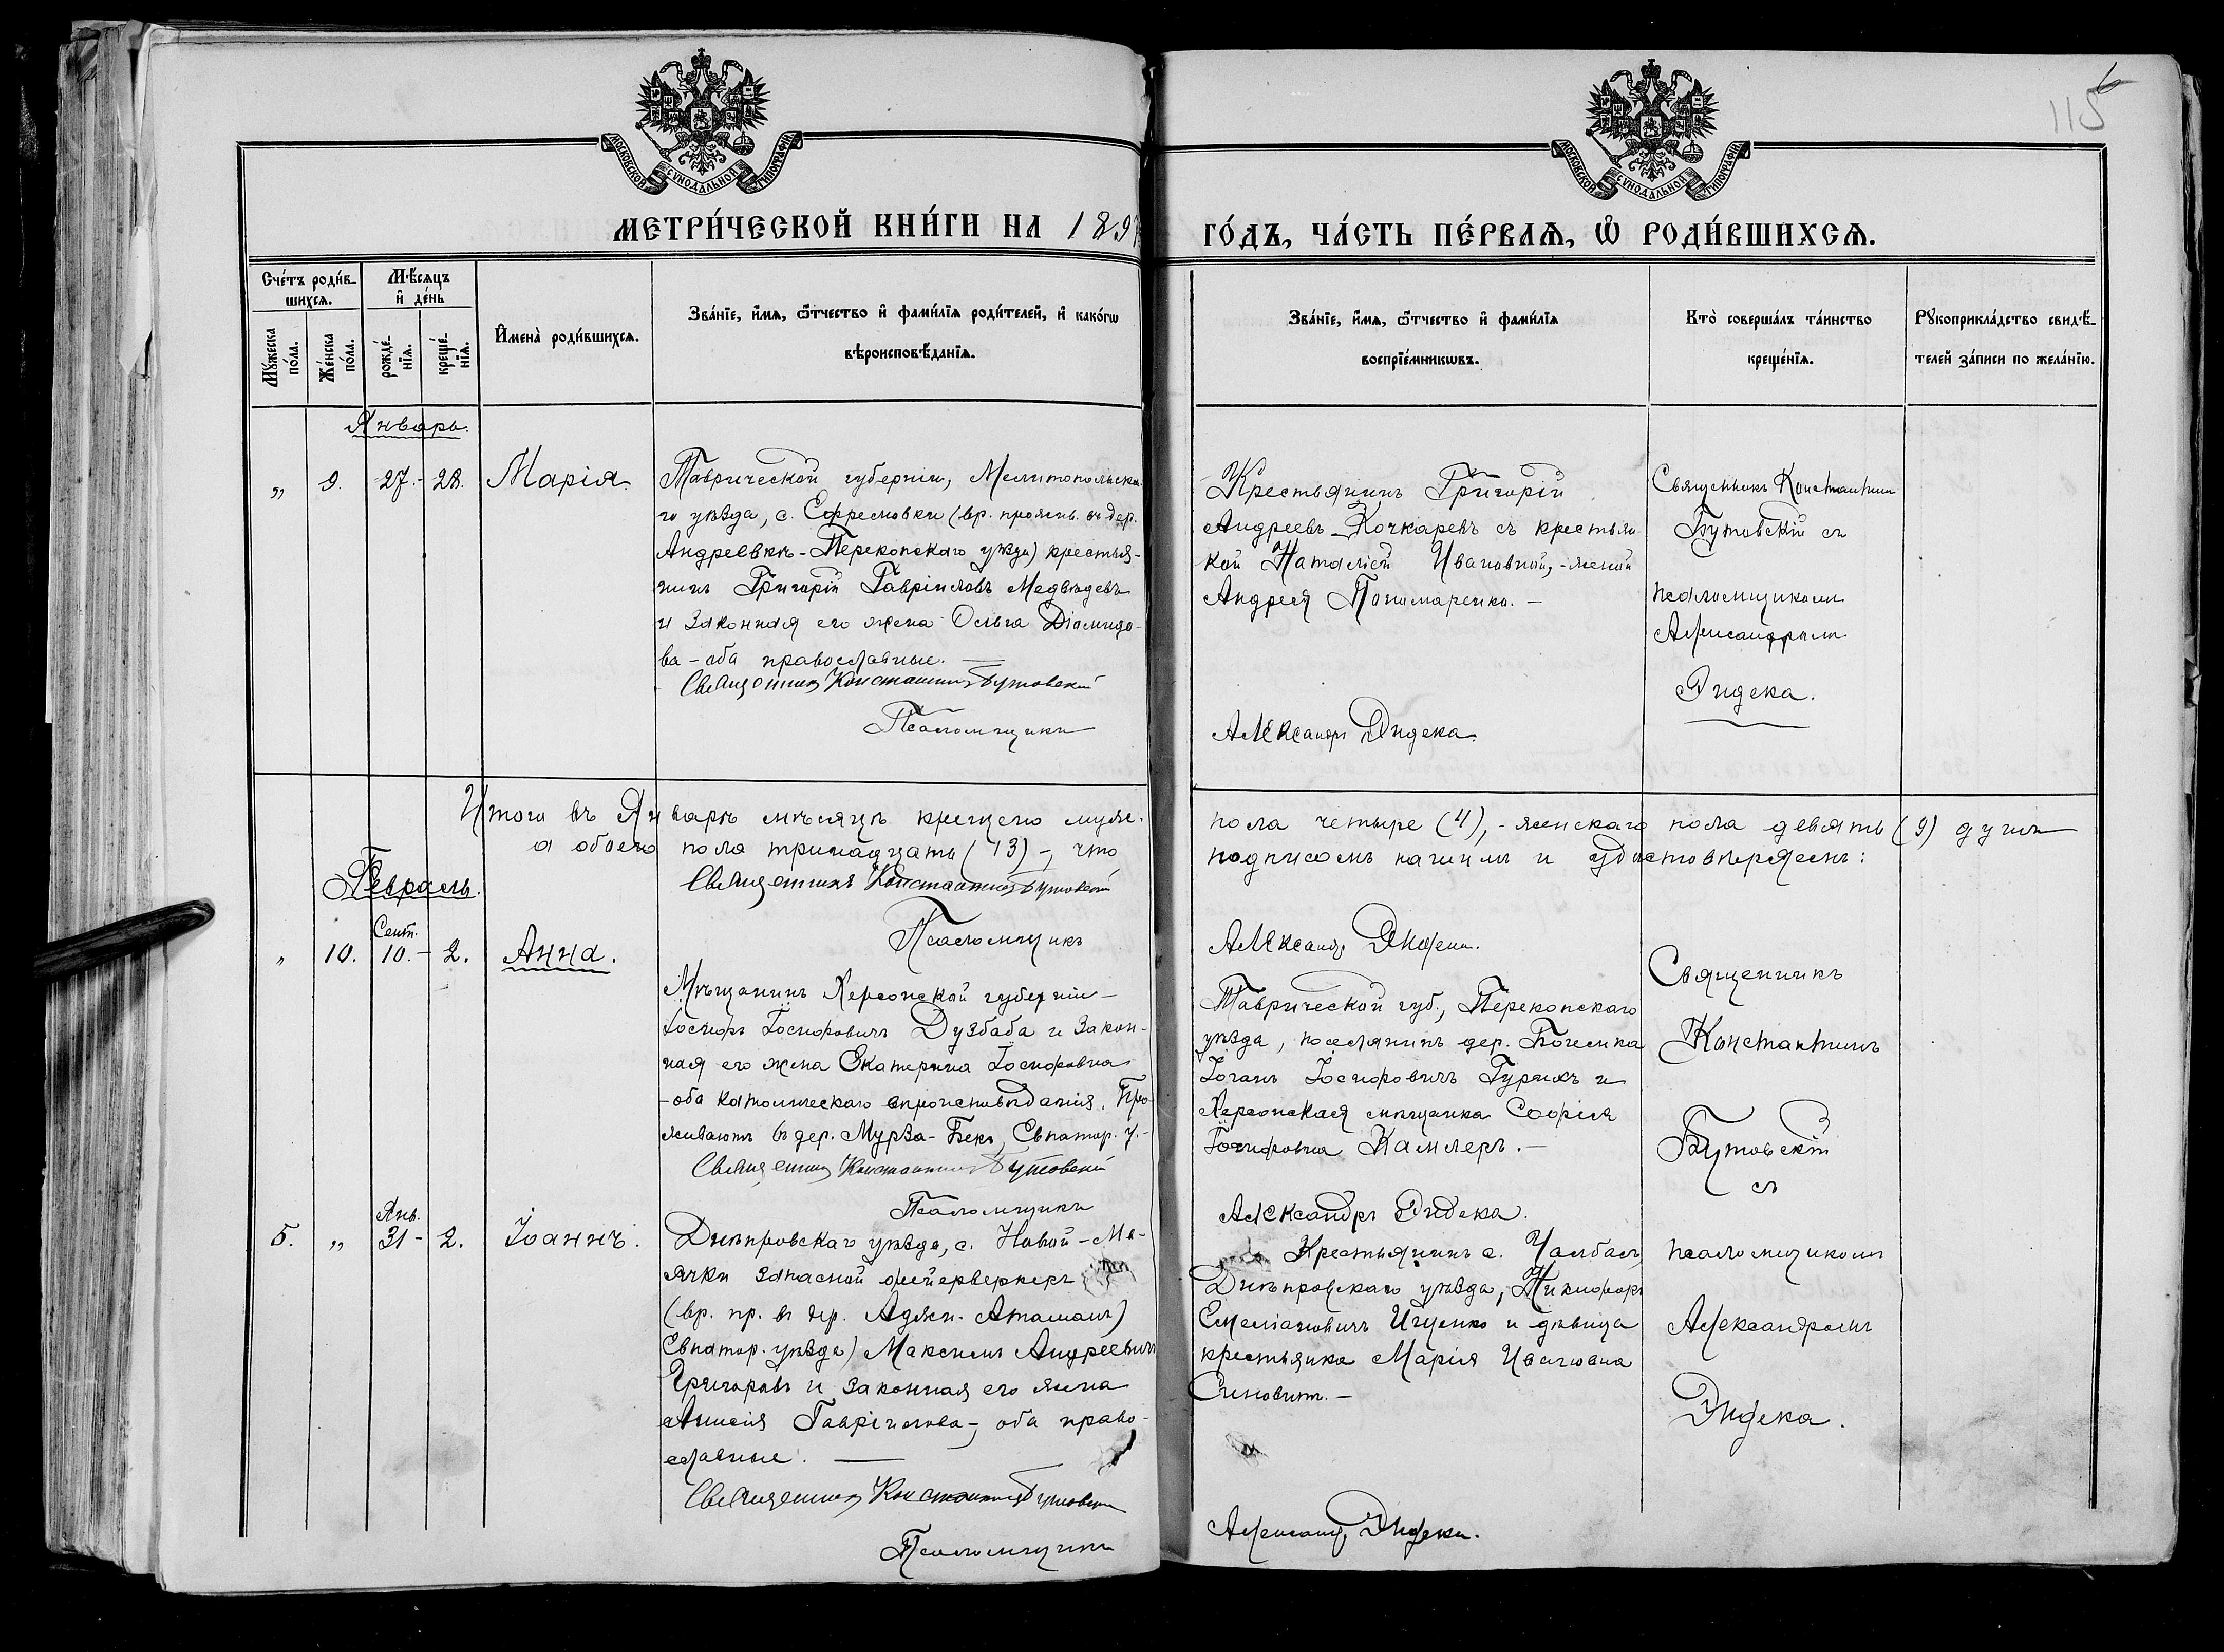 115
МОСКОВСКОЙ СУНОДАЛЬНОЙ ТИПОГРАФІИ
МОСКОВСКОЙ СУНОДАЛЬНОЙ ТИПОГРАФІИ
МЕТРИ́ЧЕСКОЙ КНИ́ГИ НА 189
ГО́ДЪ, ЧА́СТЬ ПЕ́РВАѦ, Ѡ РОДИ́ВШИХСѦ.
Сче́тъ роди́в-
шихсѧ.
Мꙋжеска
по́ла.
Же́нска
по́ла.
Мѣ́сѧцъ
и де́нь
рожде́-
нїѧ.
креще́-
нїѧ.
Имена̀ роди́вшихсѧ.
Зва́нїе, и́мѧ, ѻ҆́тчество и҆ фами́лїѧ роди́телей, и҆ како́гѡ
вѣроисповѣ́данїѧ.
Зва́нїе, и́мѧ, ѻ҆́тчество и҆ фами́лїѧ
воспрїе́мникѡвъ.
Кто̀ соверша́лъ та́инство
креще́нїѧ.
Рꙋкоприкла́дство свидѣ́-
телей за́писи по жела́нїю.
Январь.
„ 9. 27.- 28. Марія.
Таврической губерніи, Мелитопольска-
го уѣзда, с. Ефремовки (вр. прожив. въ дер.
Андреевкѣ - Перекопскаго уѣзда) крестья-
нинъ Григорій Гавріиловъ Медвѣдевъ
и законная его жена Ольга Діомидо-
ва - оба православные. —
Священникъ Константинъ Бутовскій
Псаломщикъ
Крестьянинъ Григорій
Андреевъ Кочкаревъ съ крестьян-
кой Наталіей Ивановной, - женой
Андрея Пономаренко. —
Александръ Дидека.
Священникъ Константинъ
Бутовскій съ
псаломщикомъ
Александромъ
Дидека.
Итого въ Январѣ мѣсяцѣ крещено муже.
пола четыре (4), - женскаго пола девять (9) душъ
а обоего пола тринадцать (13) -, что
подписомъ нашимъ и удостовѣряемъ:
Священникъ Константинъ Бутовскій
Псаломщикъ
Александръ Дидека.
Февраль.
Сент.
„ 10. 10. - 2. Анна.
Мѣщанинъ Херсонской губерніи -
Іосифъ Іосифовичъ Дузбаба и закон-
ная его жена Екатерина Іосифовна
- оба католическаго вѣроисповѣданія. Про-
живаютъ въ дер. Мурза-Бекъ, Евпатор. у. -
Священникъ Константинъ Бутовскій
Псаломщикъ
Таврической губ., Перекопскаго
уѣзда, поселянинъ дер. Богемка
Іоганъ Іосифовичъ Гурихъ и
Херсонская мѣщанка Софія
Іосифовна Камлеръ. —
Александръ Дидека.
Священникъ
Константинъ
Бутовскій
съ
псаломщикомъ
Александромъ
Дидека.
Янв.
5. „ 31 - 2. Іоаннъ.
Днѣпровскаго уѣзда, с. Новой - Ма-
ячки запасной фейерверкеръ
(вр. пр. въ дер. Аджи-Атаманъ)
Евпатор. уѣзда) Максимъ Андреевичъ
Григоровъ и законная его жена
Анисія Гавріилова -, оба право-
славные. —
Священникъ Константинъ Бутовскій
Псаломщикъ
Крестьянинъ с. Чалбасъ,
Днѣпровскаго уѣзда, Никифоръ
Емеліановичъ Ищенко и дѣвица
крестьянка Марія Ивановна
Синовит. —
Александръ Дидека.